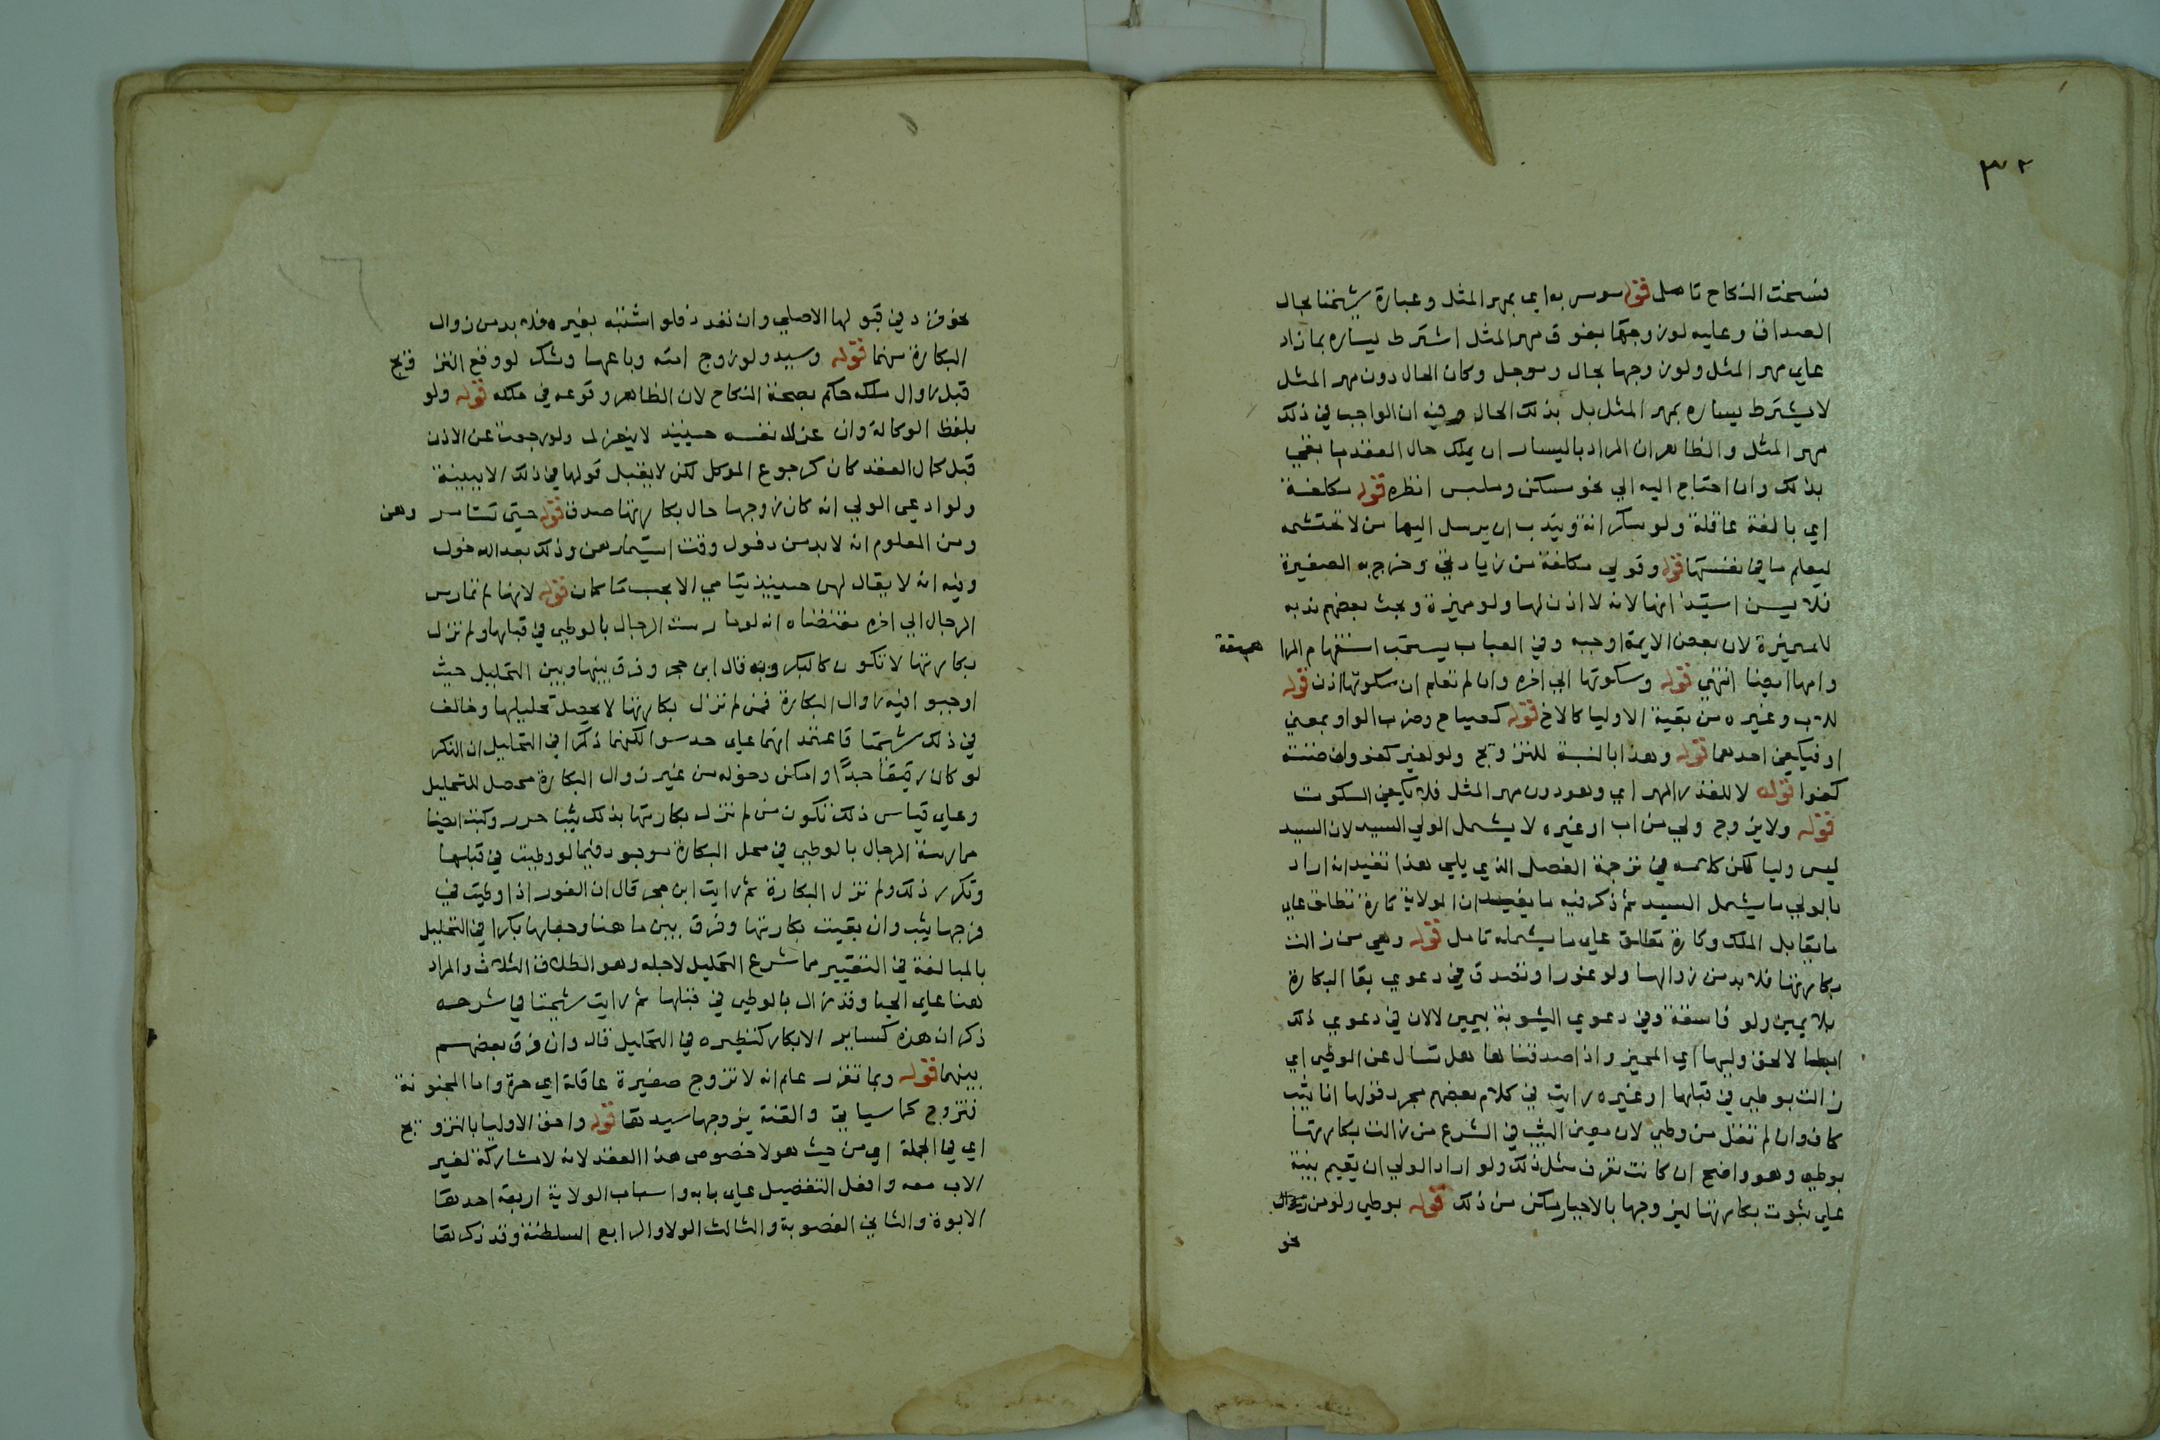 ٣٢
فسخت النكاح تامل قوله موسر به اي بمهر المثل وعبارة شيخنا بحال
الصداق وعليه لو زوجها بفوق مهر المثل اشترط يساره بما زاد
على مهر المثل ولو زوجها بحال وموجل وكان الحال دون مهر المثل
لا يشترط يساره بمهر المثل بل بذلك الحال وفيه ان الواجب في ذلك
مهر المثل والظاهر ان المراد باليسار ان يملك حال العقد ما يفي
بذلك وان احتاج اليه الى نحو مسكن وملبس انظره قوله مكلفة
اي بالغة عاقلة ولو سكرانة ويندب ان يرسل اليها من لا تحتشمه
ليعلم ما في نفسها قوله وقولي مكلفة من زيادتي وخرج به الصغيرة
فلا يسن استيذانها لانه لا اذن لها ولو مميزة وبحث بعضهم ندبه
للمميزة لان بعض الايمة اوجبه وفي العباب يستحب استفهام المراهقة
وامها ايضا انتهى قوله وسكوتها الى اخره وان لم تعلم ان سكوتها اذن قوله
للاب وغيره من بقية الاوليا كالاخ قوله كصياح وضرب الواو بمعنى
او فيكفي احدهما قوله وهذا بالنسبة للتزويج ولو لغير كفو وان ظنته
كفوا قوله لا للقدر المهر اي وهو دون مهر المثل فلا يكفي السكوت
قوله ولا يزوج ولي من اب او غيره لا يشمل الولي السيد لان السيد
ليس وليا لكن كلامه في ترجمة الفصل الذي يلي هذا تفيد انه اراد
بالولي ما يشمل السيد ثم ذكر فيه ما يفيد ان الولاية تارة تطلق على
ما يقابل الملك وتارة تطلق على ما يشمله تامل قوله وهي من زالت
بكارتها فلا بد من زوالها ولو غورا وتصدق في دعوى بقا البكارة
بلا يمين ولو فاسقة وفي دعوى الثيوبة بيمين لان في دعوى ذلك
ابطالا لحق وليها اي المجبر واذا صدقناها هل تسال عن الوطي اي
زالت بوطي في قبلها او غيره رايت في كلام بعضهم مجرد قولها انا ثيب
كاف وان لم تقل من وطي لان معنى الثيب في الشرع من زالت بكارتها
بوطي وهو واضح ان كانت تعرف مثل ذلك ولو اراد الولي ان يقيم بينة
على ثبوت بكارتها ليزوجها بالاجبار مكن من ذلك قوله بوطي ولو من
نحو
نحو قرد في قبولها الاصلي وان تعدد فلو اشتبه بغيره فلا بد من زوال
البكارة منهما قوله وسيد ولو زوج امته وباعها وشك لو وقع التزويج
قبل زوال ملكه حكم بصحة النكاح لان الظاهر وقوعه في ملكه قوله ولو
بلفظ الوكالة وان عزل نفسه حينيذ لا ينعزل ولو رجعت عن الاذن
قبل كمال العقد كان كرجوع الموكل لكن لا يقبل قولها في ذلك الا ببينة
ولو ادعى الولي انه كان زوجها حال بكارتها صدق قوله حتى تستامر وهن
ومن المعلوم انه لا بد من دخول وقت استيمارهن وذلك بعد الدخول
وفيه انه لا يقال لهن حينيذ يتامى الا بحسب ما كان قوله لانها لم تمارس
الرجال الى اخره مقتضاه انه لو مارست الرجال بالوطي في قبلها ولم تزل
بكارتها لا تكون كالبكر وبه قال ابن حجر وفرق بينها وبين التحليل حيث
اوجبوا فيه زوال البكارة فمن لم تزل بكارتها لا يحصل تحليلها وخالف
في ذلك شيخنا فاعتمد انهما على حد سوا لكنهما ذكرا في التحليل ان الذكر
لو كان رقيقا جدًا وامكن دخوله من غير زوال البكارة محصل للتحليل
وعلى قياس ذلك تكون من لم تزل بكارتها بذلك ثيبا حرر وكتب ايضا
ممارسة الرجال بالوطي في محل البكارة موجود فيما لو وطيت في قبلها
وتكرر ذلك ولم تزل البكارة ثم رايت ابن حجر قال ان الغورا اذا وطيت في
فرجها ثيب وان بقيت بكارتها وفرق بين ما هنا وجعلها بكرا في التحليل
بالمبالغة في التنفير مما شرع التحليل لاجله وهو الطلاق الثلاث والمراد
هنا على الحيا وقد زال بالوطي في قبلها ثم رايت شيخنا في شرحه
ذكر ان هذه كساير الابكار كنظيره في التحليل قال وان فرق بعضهم
بينهما قوله وبما تقرر علم انه لا تزوج صغيرة عاقلة اي حرة واما المجنونة
فتزوج كما سياتي والقنة يزوجها سيدها قوله واحق الاوليا بالتزويج
اي في الجملة اي من حيث هو لا خصوص هذا العقد لانه لا مشاركة لغير
الاب معه وافعل التفضيل على بابه واسباب الولاية اربعة احدها
الابوة والثاني العصوبة والثالث الولا والرابع السلطنة وقد ذكرها